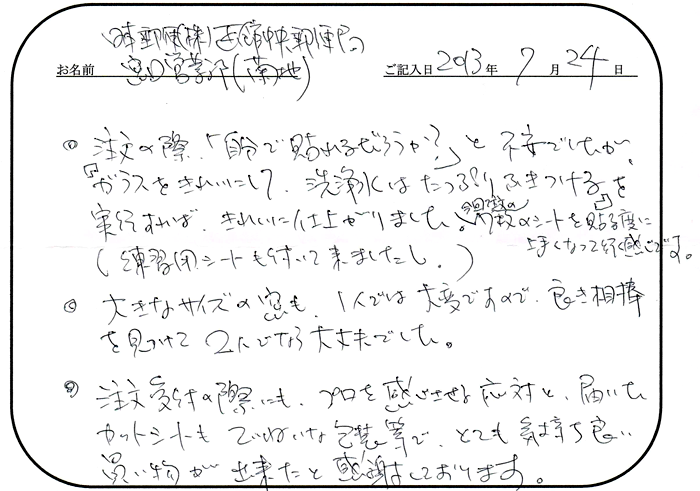 日本郵便(株) 函館中央郵便局
お名前 窓口営業部(菊地) ご記入日 2013年 7月 24日
① 注文の際、「自分で貼れるだろうか?」と不安でしたが、
「ガラスをきれいにして、洗浄水はたっぷりふきつける」を
実行すれば、きれいに仕上がりました。今回複数のシートを貼る度に
上手くなって行く感じです。
(練習用シートも付いて来ましたし。)
② 大きなサイズの窓も、1人では大変ですので、良き相棒
を見つけて 2人でなら大丈夫でした。
③ 注文受付の際にも、プロを感じさせる応対と、届いた
カットシートもていねいな包装等で、とても気持ち良い
買い物が出来たと感謝しております。